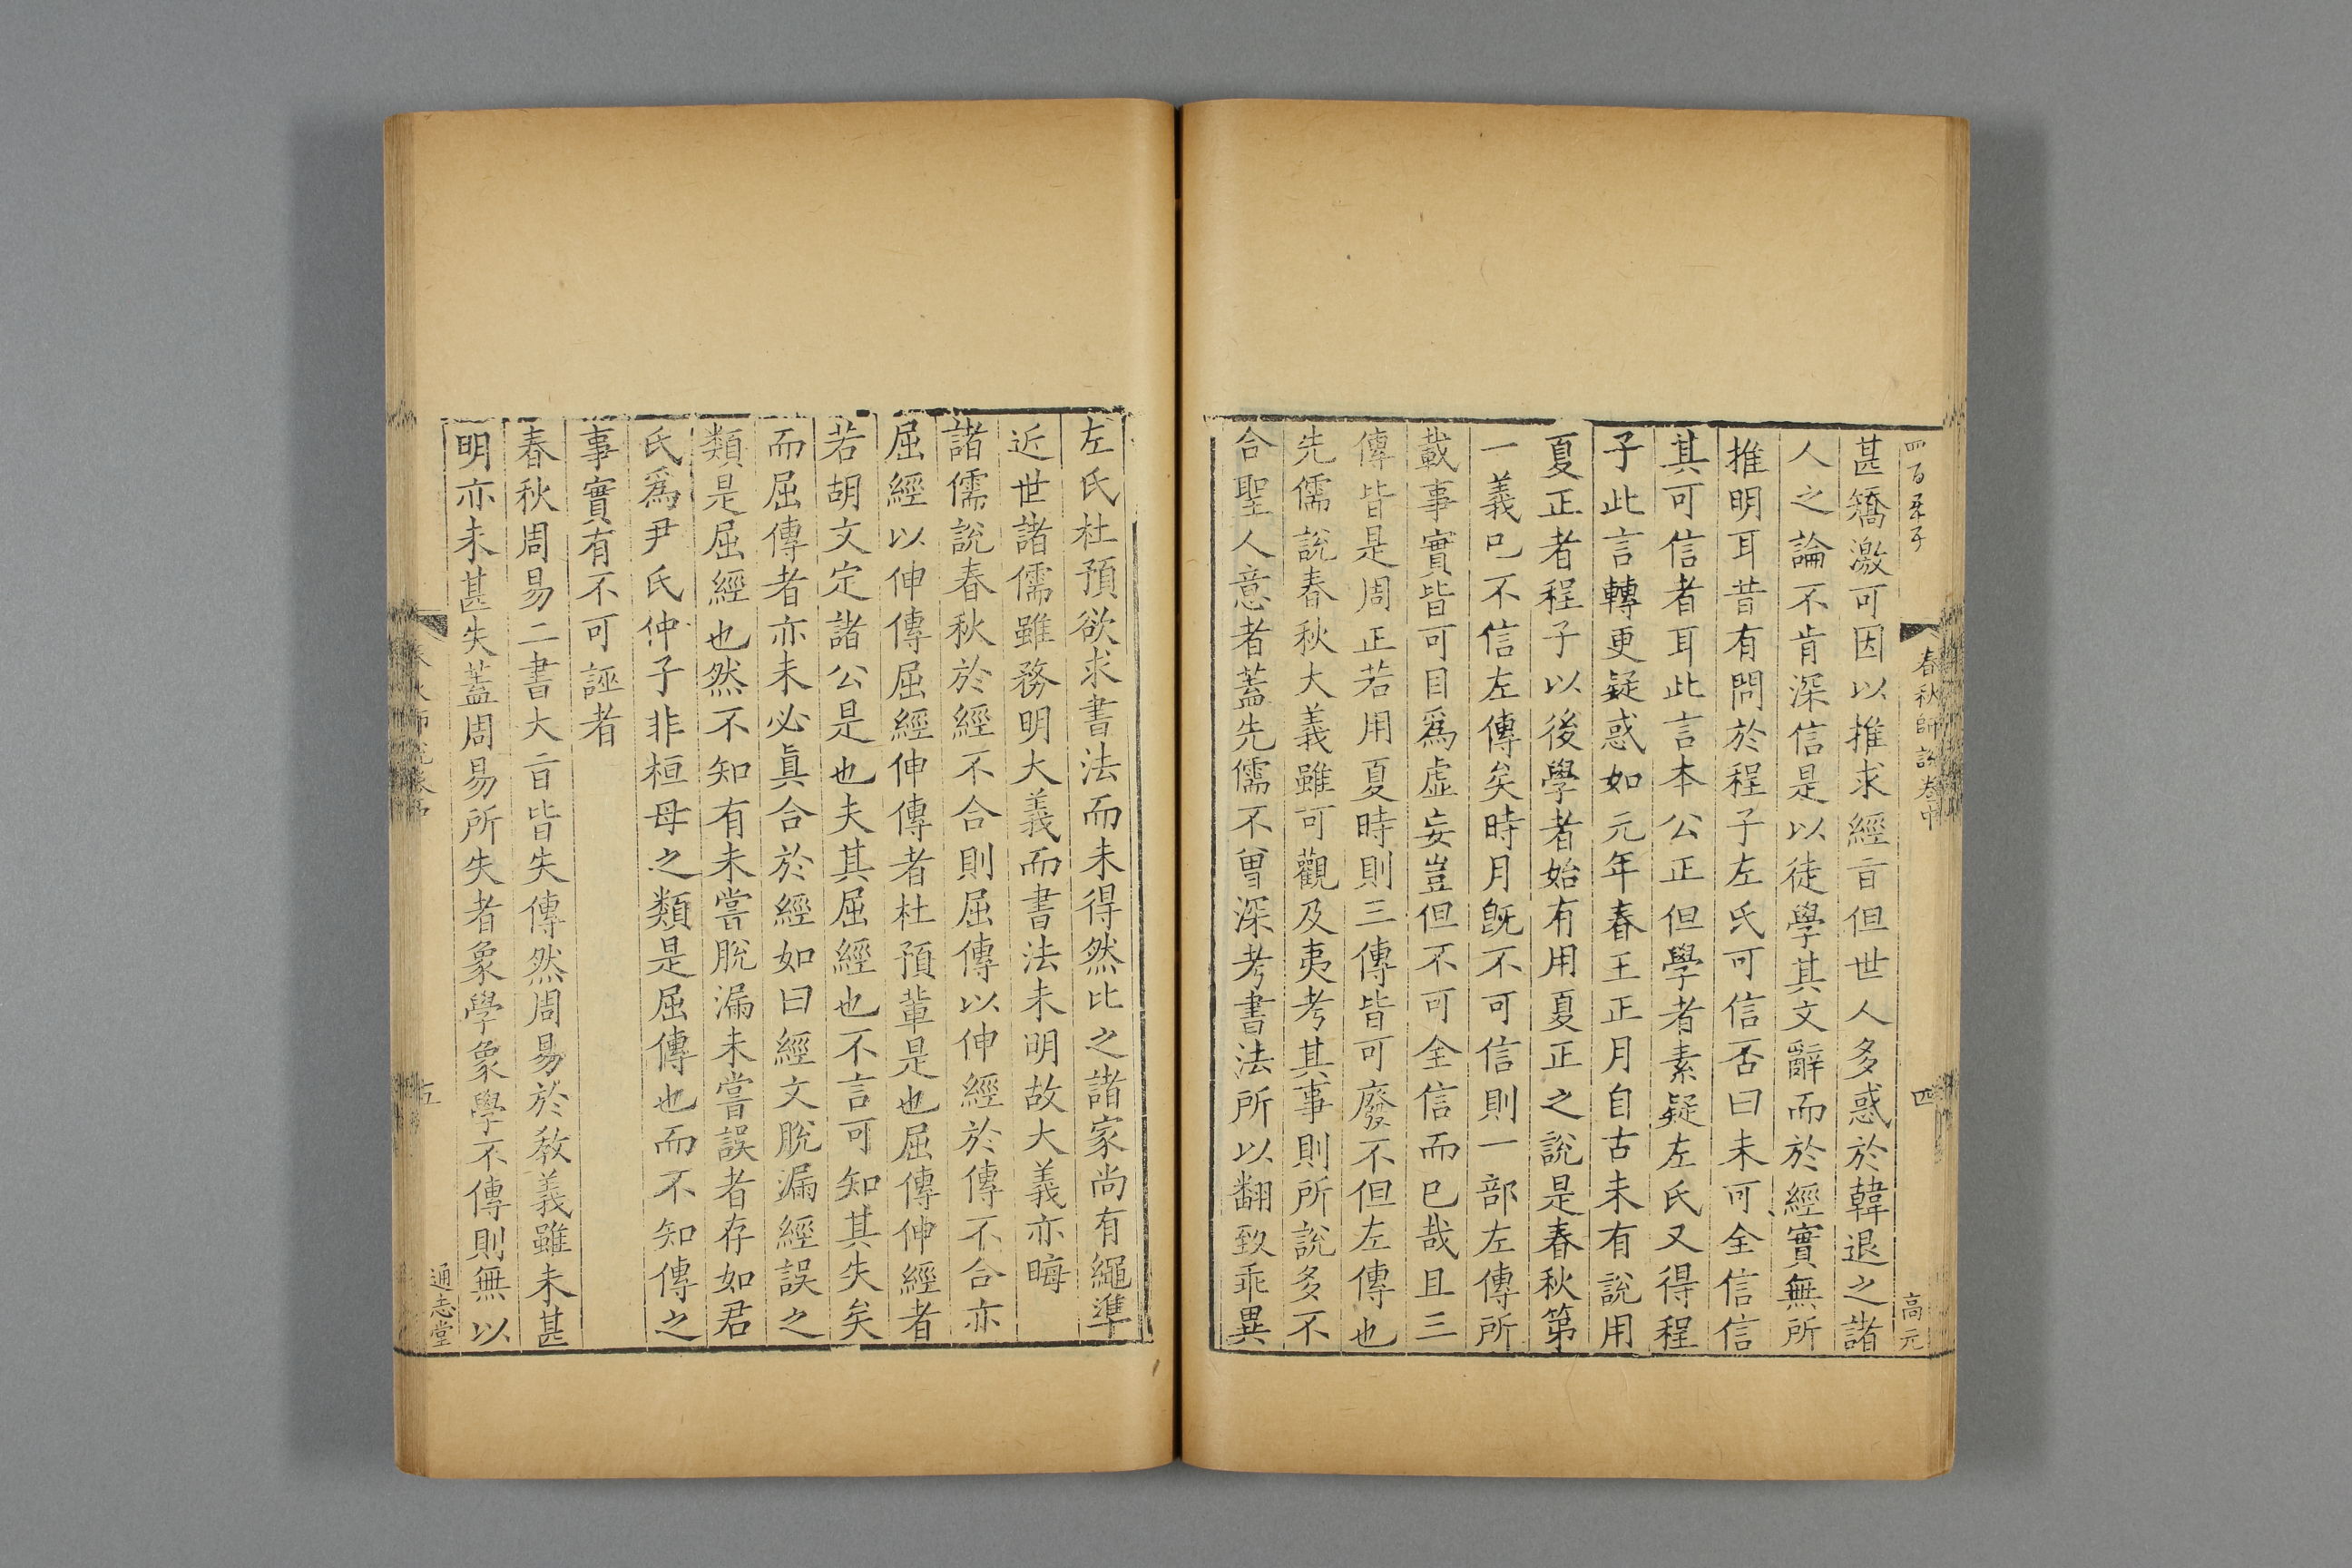 春秋師說卷中
四
高元
甚矯激可因以推求經㫖但世人多惑於韓退之諸
人之論不肯深信是以徒學其文辭而於經實無所
推明耳昔有問於程子左氏可信否曰未可全信信
其可信者耳此言本公正但學者素疑左氏又得程
子此言轉更疑惑如元年春王正月自古未有說用
夏正者程子以後學者始有用夏正之說是春秋第
一義已不信左傳矣時月旣不可信則一部左傳所
載事實皆可目爲虛妄豈但不可全信而已哉且三
傳皆是周正若用夏時則三傳皆可廢不但左傳也
先儒說春秋大義雖可觀及夷考其事則所說多不
合聖人意者蓋先儒不曾深考書法所以翻致乖異
左氏杜預欲求書法而未得然比之諸家尚有繩準
近世諸儒雖務明大義而書法未明故大義亦晦
諸儒說春秋於經不合則屈傳以伸經於傳不合亦
屈經以伸傳屈經伸傳者杜預輩是也屈傳伸經者
若胡文定諸公是也夫其屈經也不言可知其失矣
而屈傳者亦未必眞合於經如曰經文脫漏經誤之
類是屈經也然不知有未嘗脫漏未嘗誤者存如君
氏爲尹氏仲子非桓母之類是屈傳也而不知傳之
事實有不可誣者
春秋周易二書大㫖皆失傳然周易於教義雖未甚
明亦未甚失蓋周易所失者象學象學不傳則無以
五
通志堂